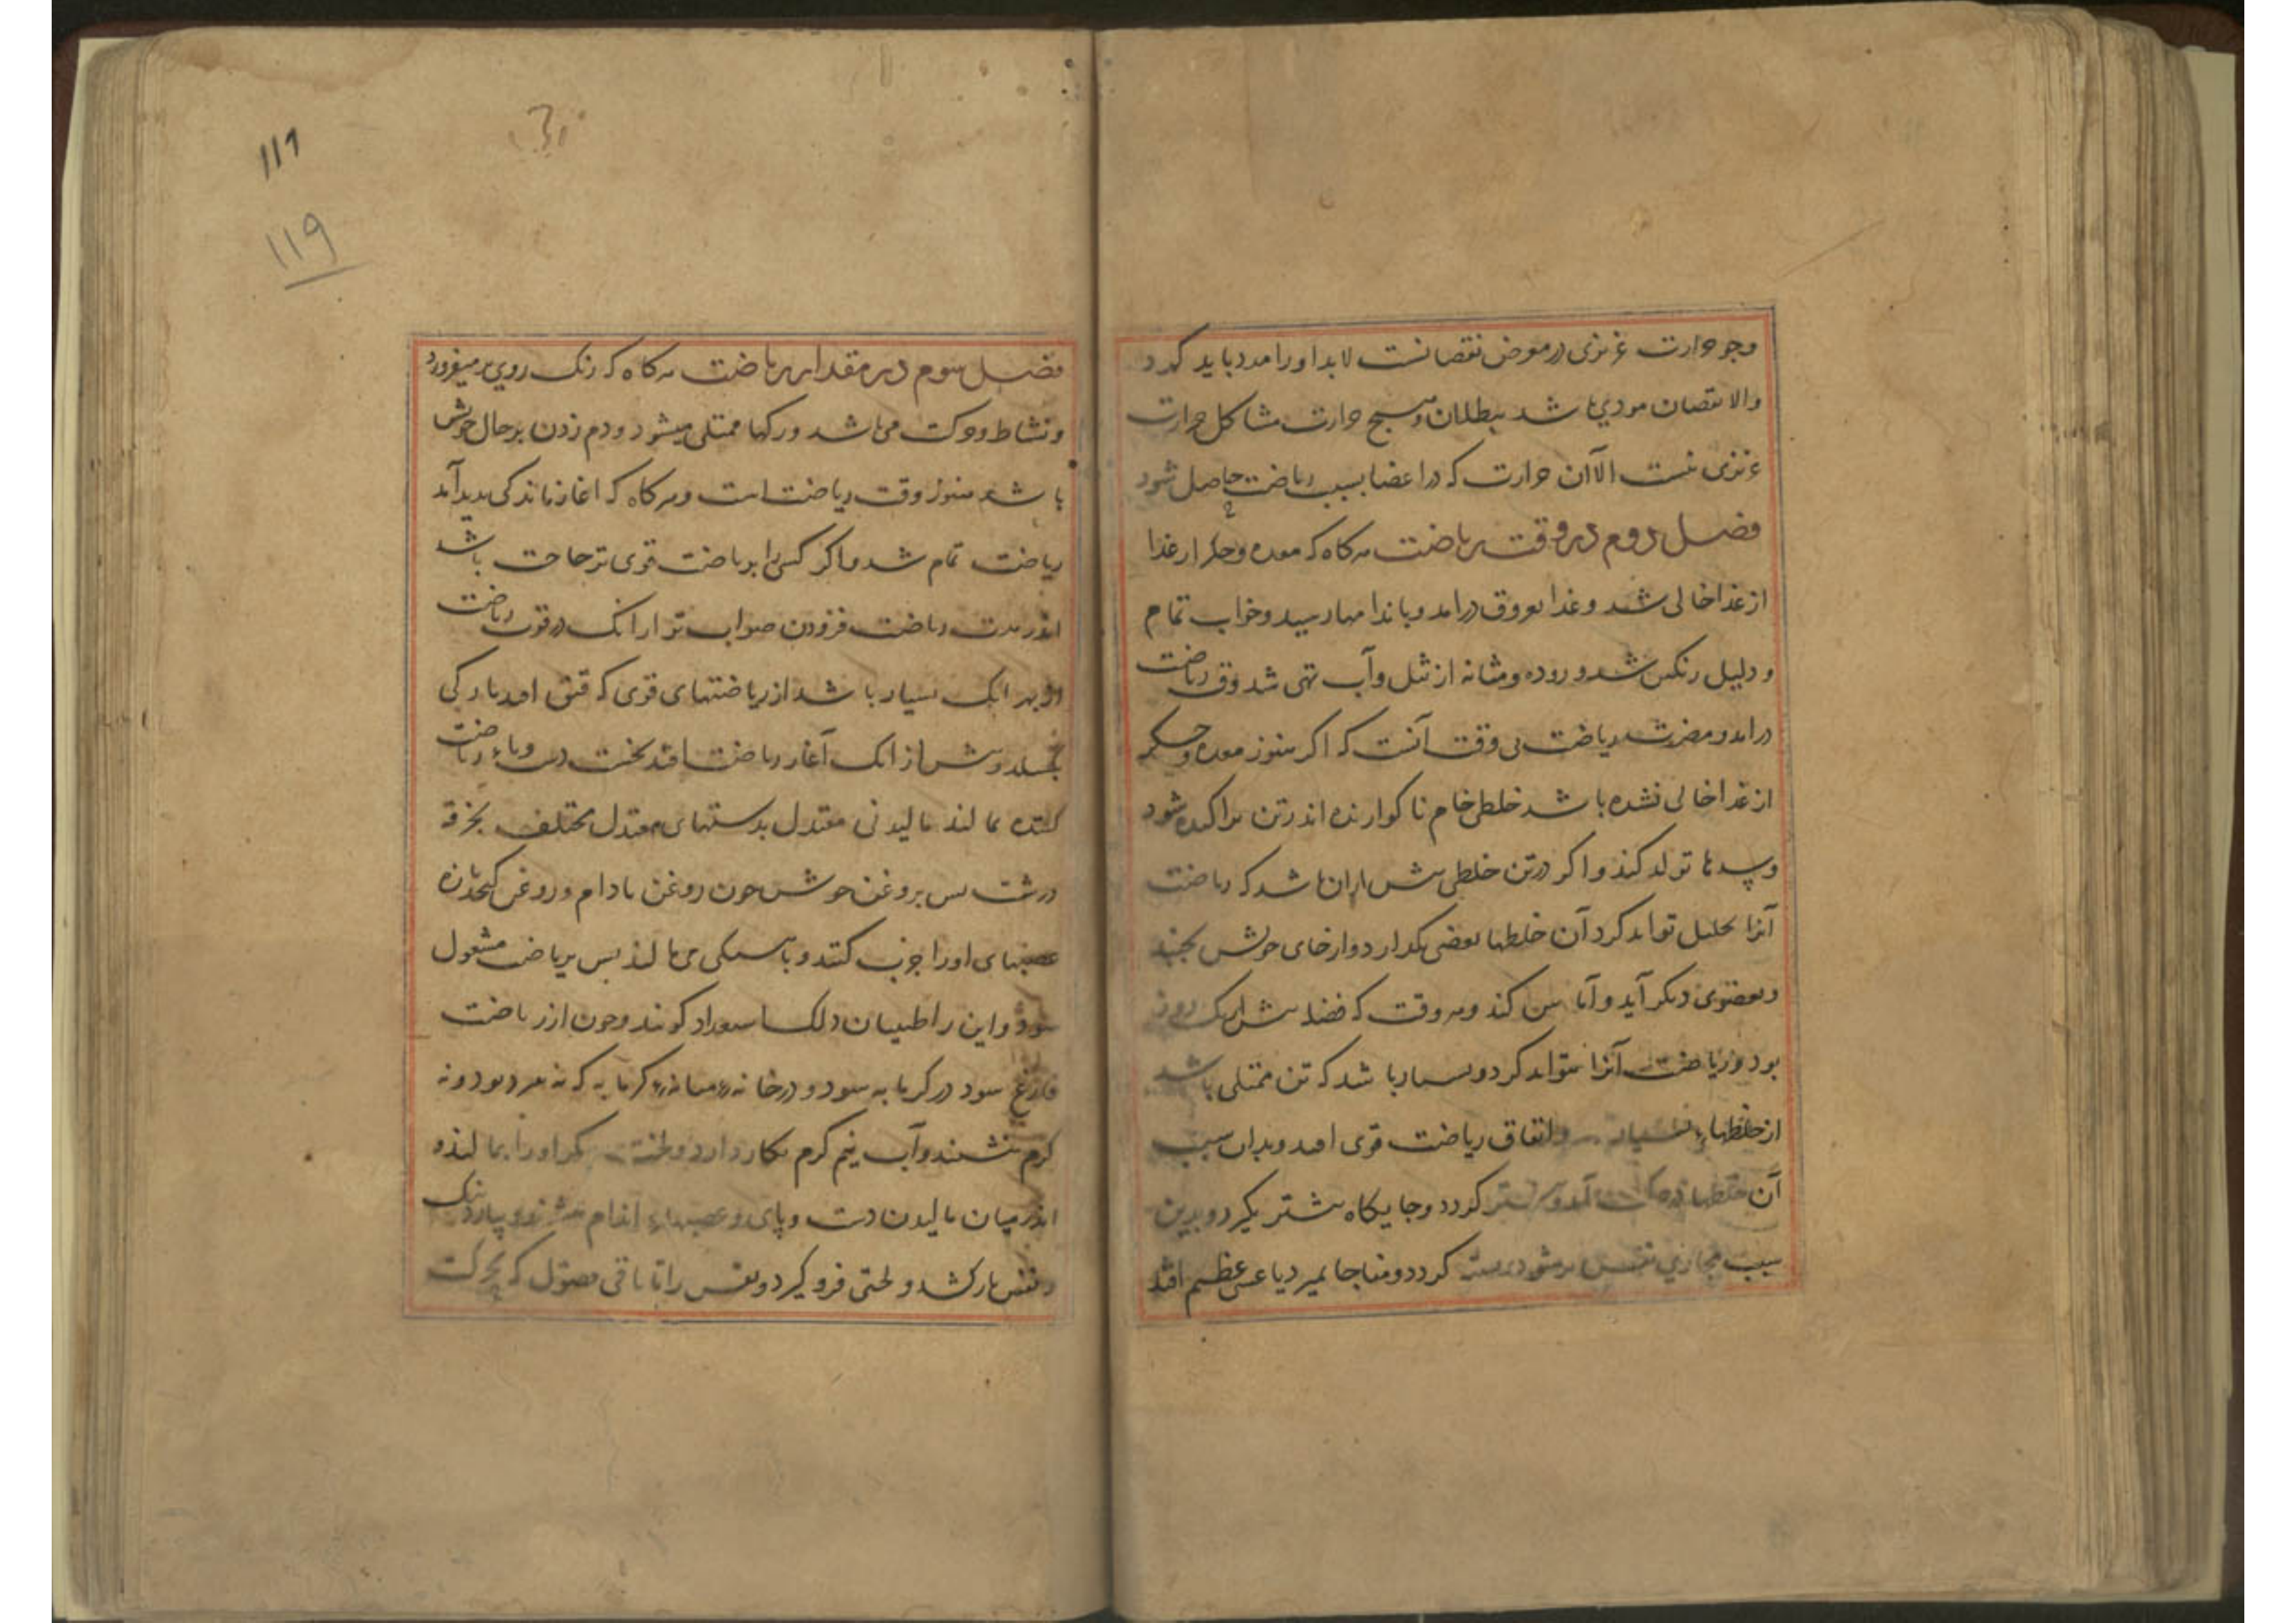 وجو حرارت غریزی در موض نقصانست لابد او را مدد باید کرد
والا نقصان مودی باشد ببطلان و هیچ حرارت مشاکل حرارت
غریزی نیست الا آن حرارت که در اعضا بسبب ریاضت حاصل شود
فصل دوم در وقت ریاضت هرکاه که معده و جکر از غذا
از غذا خالی شد و غذا بعروق درامد و باندامها رسید و خواب تمام
و دلیل رنکین شد و روده و مثانه از ثقل و آب تهی شد وقت ریاضت
درامد و مضرت ریاضت بی وقت آنست که اکر هنوز معده و جکر
از غذا خالی نشده باشد خلطی خام ناکوارنده اندر تن پراکنده شود
و سدها تولد کند و اکر در تن خلطی بیش ازان باشد که ریاضت
آنرا تحلیل تواند کرد آن خلطها بعضی بکدازد و از جای خویش بجنبد
و بعضوی دیکر آید و آماس کند و هر وقت که فضله بیش از یک روزه
بود و ریاضت آنرا نتواند کرد و بسیار باشد که تن ممتلی باشد
از خلطهاء بسیار و اتفاق ریاضت قوی افتد و بدان سبب
آن خلطها در حرکت آمد و کردد و جایکاه بیشتر بکیرد و بدین
سبب مجاری نفس کردد و مفاجا بمیرد یا عشی عظیم افتد
فصل سوم در مقدار ریاضت هرکاه که رنک روی بر میفروزد
و نشاط و حرکت می باشد و رکها ممتلی میشود و دم زدن بر حال خویش
باشد هنوز وقت ریاضت است و هرکاه که اغاز ماندکی پدید آمد
ریاضت تمام شد و اکر کسی را بریاضت قوی تر حاجت باشد
اندر مدت ریاضت فزودن صواب تر از انک در قوت ریاضت
از بهر انک بسیار باشد از ریاضتهای قوی که فتق افتد یا رکی
بکسلد و پیش از انک آغاز ریاضت افتد نخست دست و پاء ریاضت
کننده بمالند مالیدنی معتدل بدستهای معتدل مختلف بخرقه
درشت پس بروغن خوش چون روغن بادام و روغن کنجد تازه
عصبهای او را چرب کنند و باهستکی می مالند پس بریاضت مشغول
شود و این را طبیبان دلک استعداد کویند و چون از ریاضت
فارغ شود در کرمابه شود و در خانه میانه کرمابه که نه سرد بود و نه
کرم بنشیند و آب نیم کرم بکار دارد و لختی دیکر او را بمالند و
اندر میان مالیدن دست و پای و عصبهاء اندام
و نفس باز کشد و لختی فرو کیرد و نفس را تا باقی فضول که بحرکت
۱۱۹